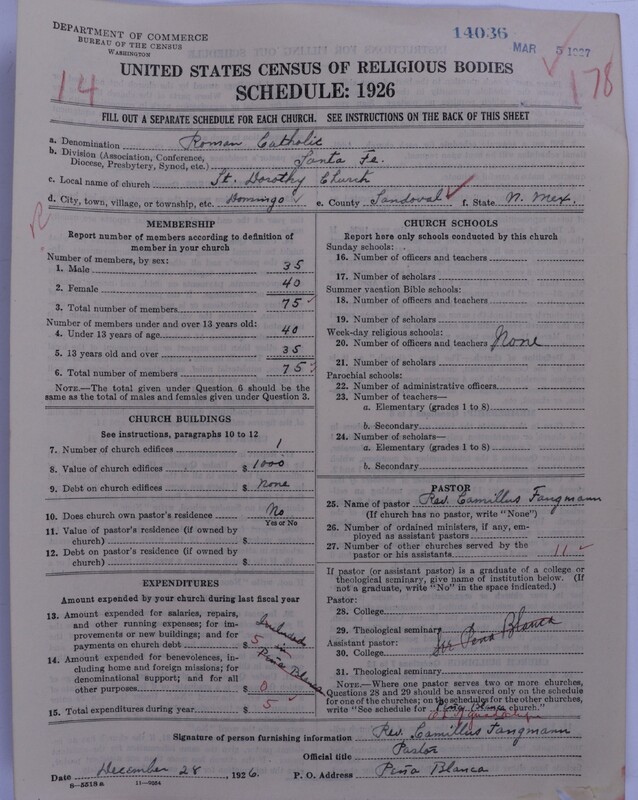 DEPARTMENT OF COMMERCE
BUREAU OF THE CENSUS
WASHINGTON
14036
MAR 5 1927
14
178
UNITED STATES CENSUS OF RELIGIOUS BODIES
SCHEDULE: 1926
FILL OUT A SEPARATE SCHEDULE FOR EACH CHURCH. SEE INSTRUCTIONS ON THE BACK OF THIS SHEET
a. Denomination Roman Catholic
b. Division (Association, Conference, Diocese, Presbytery, Synod, etc.) Santa Fe.
c. Local name of church St. Dorothy Church
d. City, town, village, or township, etc. Domingo e. County Sandoval f. State N. Mex.
R
MEMBERSHIP
Report number of members according to definition of
member in your church
Number of members, by sex:
1. Male 35
2. Female 40
3. Total number of members 75
Number of members under and over 13 years old:
4. Under 13 years of age 40
5. 13 years old and over 35
6. Total number of members 75
NOTE.—The total given under Question 6 should be
same as the total of males and females given under Question 3.
CHURCH BUILDINGS
See instructions, paragraphs 10 to 12
7. Number of church edifices 1
8. Value of church edifices $ 1000
9. Debt on church edifices $ None
10. Does church own pastor's residence? No
Yes or No
11. Value of pastor's residence (if owned by
church) $
12. Debt on pastor's residence (if owned by
church) $
EXPENDITURES
Amount expended by your church during last fiscal year
13. Amount expended for salaries, repairs,
and other running expenses; for im-
provements or new buildings; and for
payments on church debt $ 5
Included
in
Peña Blanca
14. Amount expended for benevolences,
including home and foreign missions; for
denominational support; and for all
other purposes $ 0
15. Total expenditures during year $ 5
CHURCH SCHOOLS
Report here only schools conducted by this church
Sunday schools:
16. Number of officers and teachers
17. Number of scholars
Summer vacation Bible schools:
18. Number of officers and teachers
19. Number of scholars
Week-day religious schools:
20. Number of officers and teachers None
21. Number of scholars
Parochial schools:
22. Number of administrative officers
23. Number of teachers—
a. Elementary (grades 1 to 8)
b. Secondary
24. Number of scholars—
a. Elementary (grades 1 to 8)
b. Secondary
PASTOR
25. Name of pastor Rev. Camillus Fangmann
(If church has no pastor, write "None")
26. Number of ordained ministers, if any, em-
ployed as assistant pastors
27. Number of other churches served by the
pastor or his assistants 11
If pastor (or assistant pastor) is a graduate of a college or
theological seminary, give name of institution below. (If
not a graduate, write "No" in the space indicated.)
Pastor:
28. College
29. Theological seminary
Peña Blanca
Assistant pastor:
30. College
31. Theological seminary
NOTE.—Where one pastor serves two or more churches,
Questions 28 and 29 should be answered only on the schedule
for one of the churches; on the schedules for the other churches,
write "See schedule for Peña Blanca church."
Signature of person furnishing information Rev. Camillus Fangmann
Official title Pastor
Date December 28, 1926. P. O. Address Peña Blanca
8—5518a 11—9034